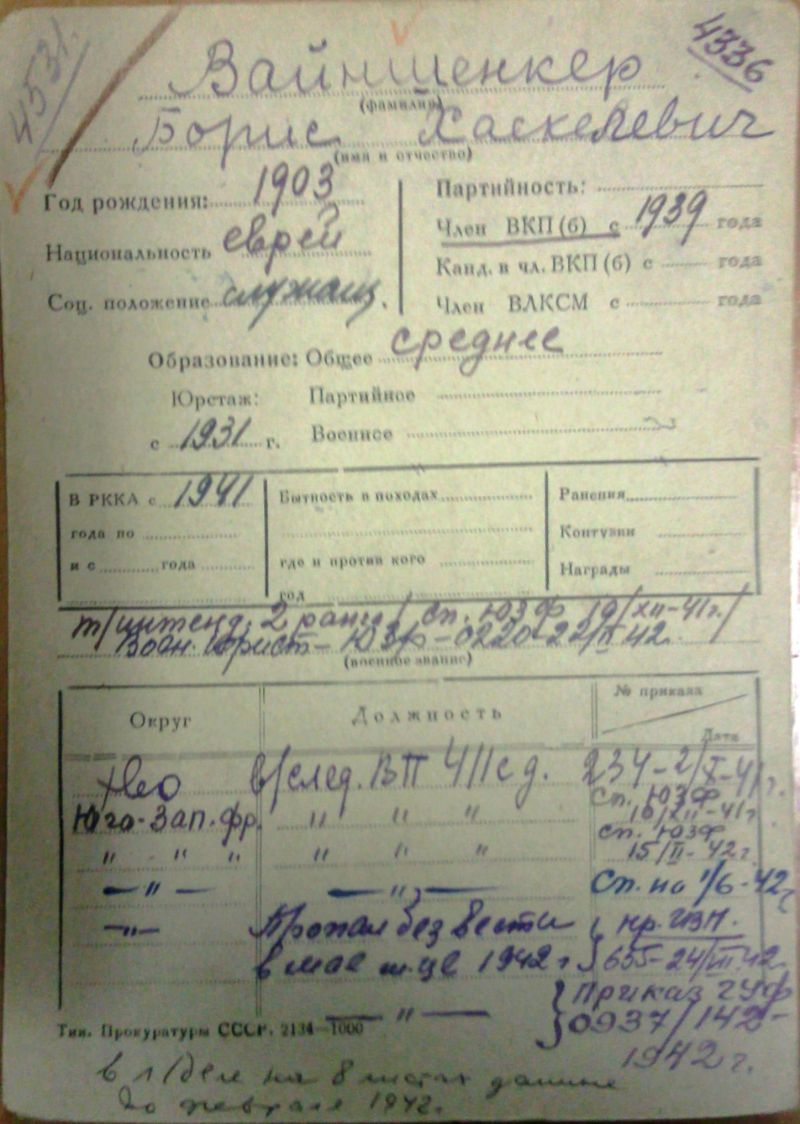 4531.
4336
Вайншенкер
(фамилия)
Борис Хаскелевич
(имя и отчество)
Год рождения: 1903
Национальность еврей
Соц. положение служащ.
Партийность:
Член ВКП(б) с 1939 года
Канд. в чл. ВКП(б) с года
Член ВЛКСМ с года
Образование: Общее среднее
Юрстаж: Партийное
с 1931 г. Военное
В РККА с 1941
года по
и с года
Бытность в походах
где и против кого
год
Ранения
Контузии
Награды
т/интенд. 2 ранга/ сп. ЮЗФ 19/XII-41г./
Воен. юрист - ЮЗФ - 0220-22/II 42.
(военное звание)
Округ Должность № приказа
Дата
ХВО в/след. ВП 411 с д. 234-2/X-41г.
Юго-Зап. фр. " " " сп. ЮЗФ 19/XII-41г
" " " " " " сп. ЮЗФ 15/II-42г.
— " — — " — Сп. на 1/6-42г
— " — Пропал без вести пр.
в мае м-це 1942 г 655-24/III 42.
— " — Приказ ГУФ
0937/142-
1942 г.
Тип. Прокуратуры СССР. 2134—1000
в л/деле на 8 листах данные
до февраля 1942.